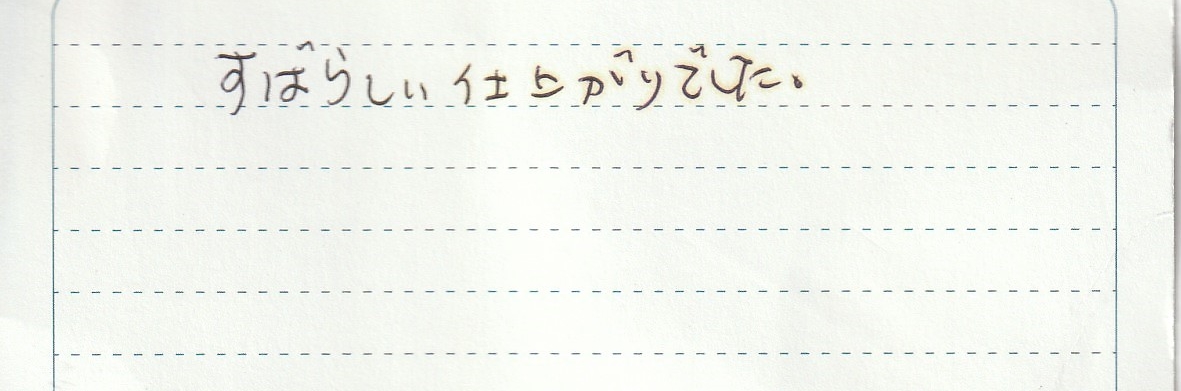 すばらしい仕上がりでした。